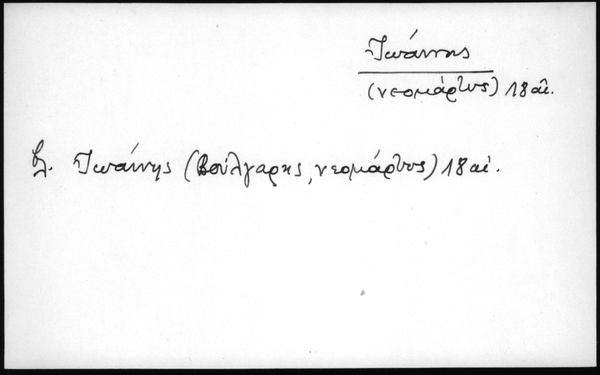 Ἰωάννης
(νεομάρτυς) 18 αἰ.
βλ. Ἰωάννης (Βούλγαρης, νεομάρτυς) 18 αἰ.